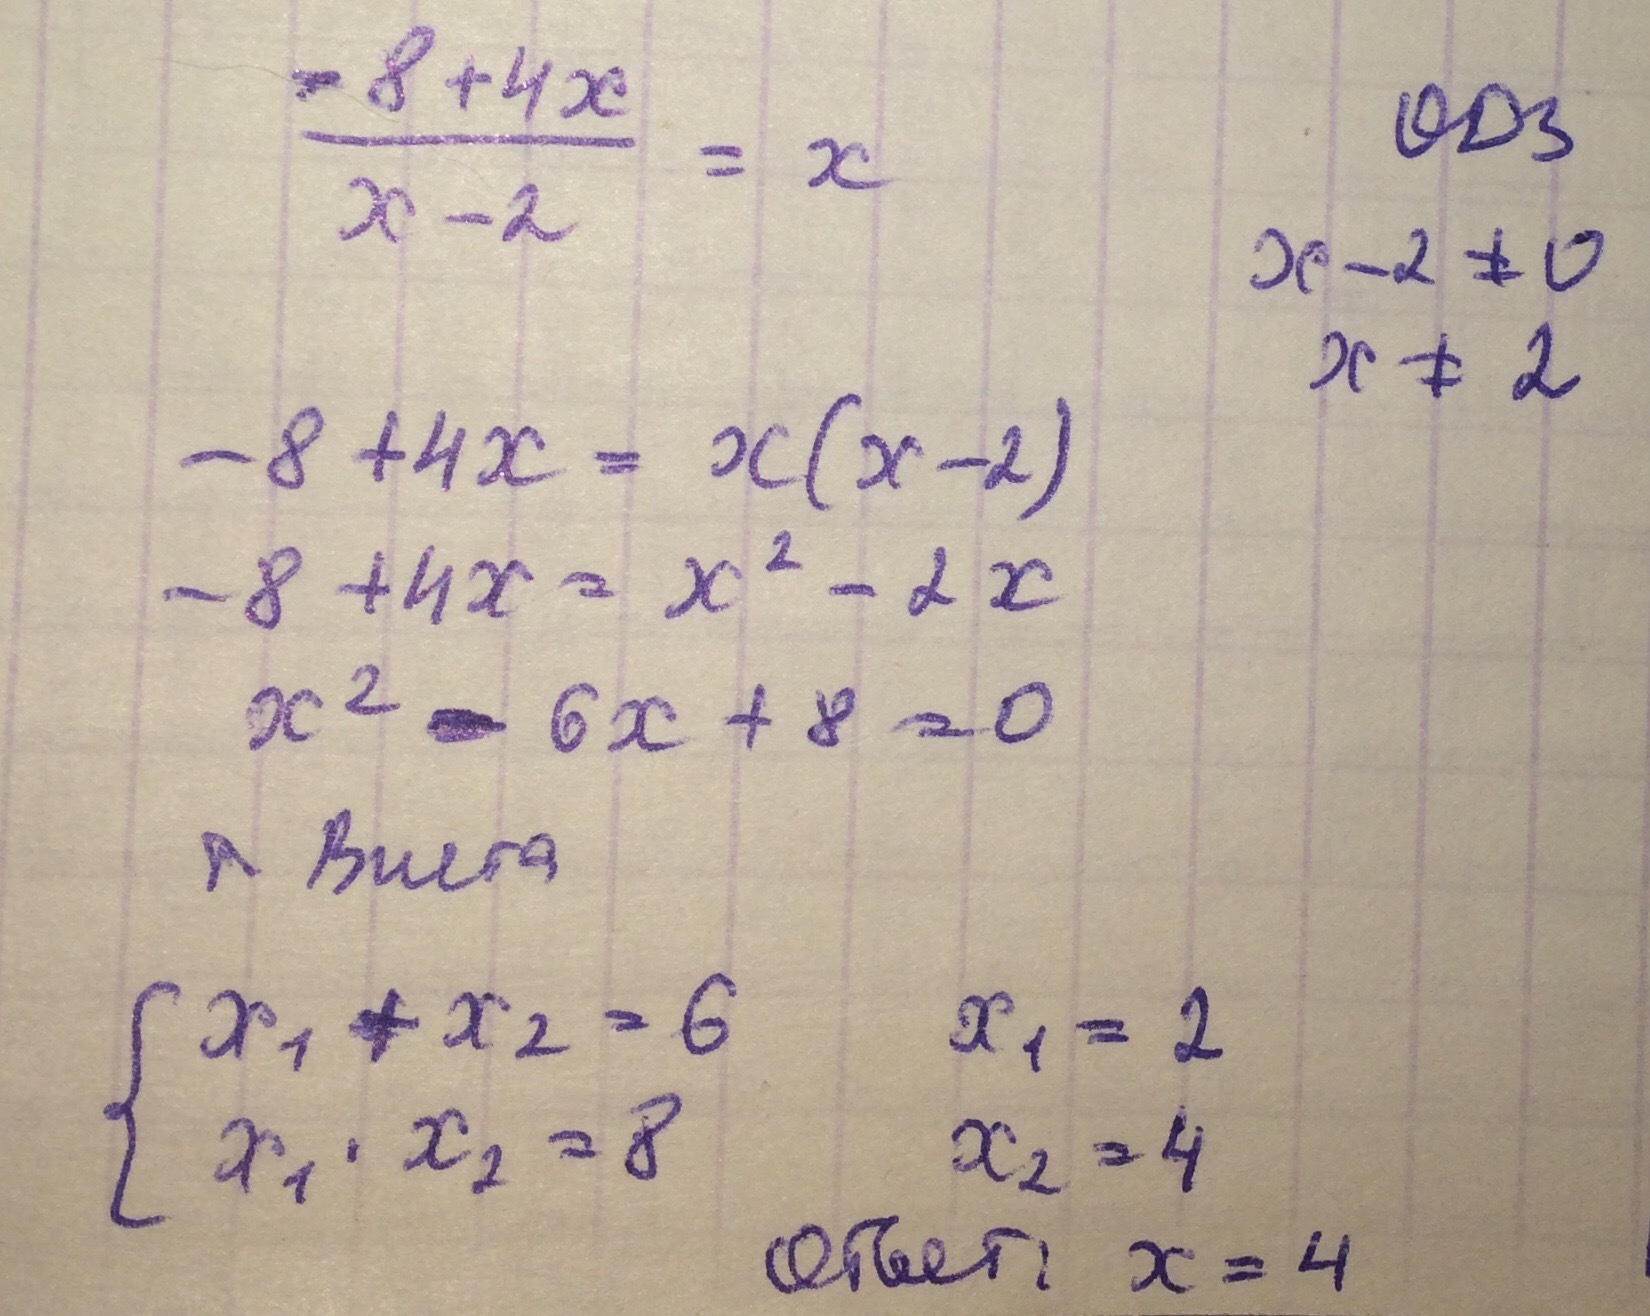 -8+4x
x-2 = x
ОДЗ
x-2≠0
x≠2
-8+4x = x(x-2)
-8+4x = x² - 2x
x² - 6x + 8 = 0
т Виета
x₁ + x₂ = 6
x₁ · x₂ = 8
x₁ = 2
x₂ = 4
Ответ: x = 4